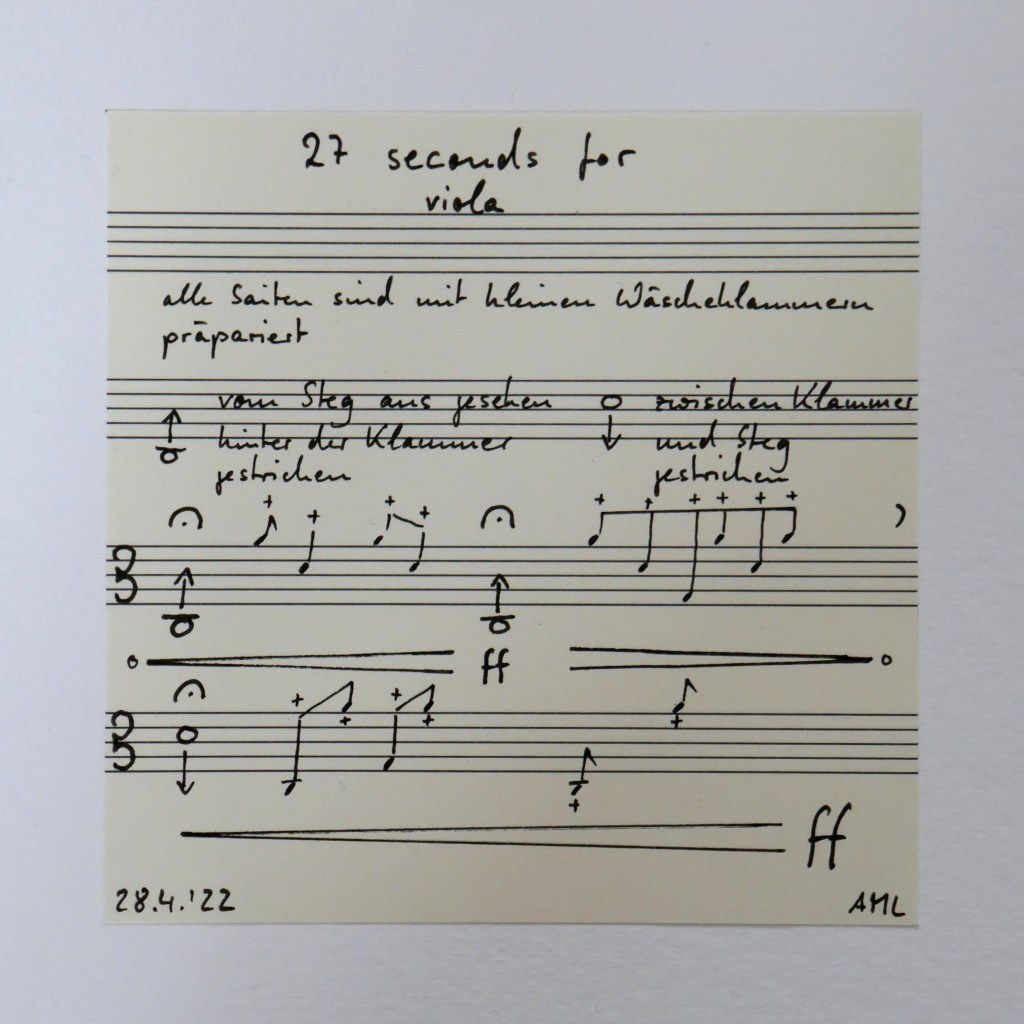 27 seconds for
viola
alle Saiten sind mit kleinen Wäscheklammern
präpariert
vom Steg aus gesehen
hinter der Klammer
gestrichen
zwischen Klammer
und Steg
gestrichen
ff
ff
28.4.'22
AML